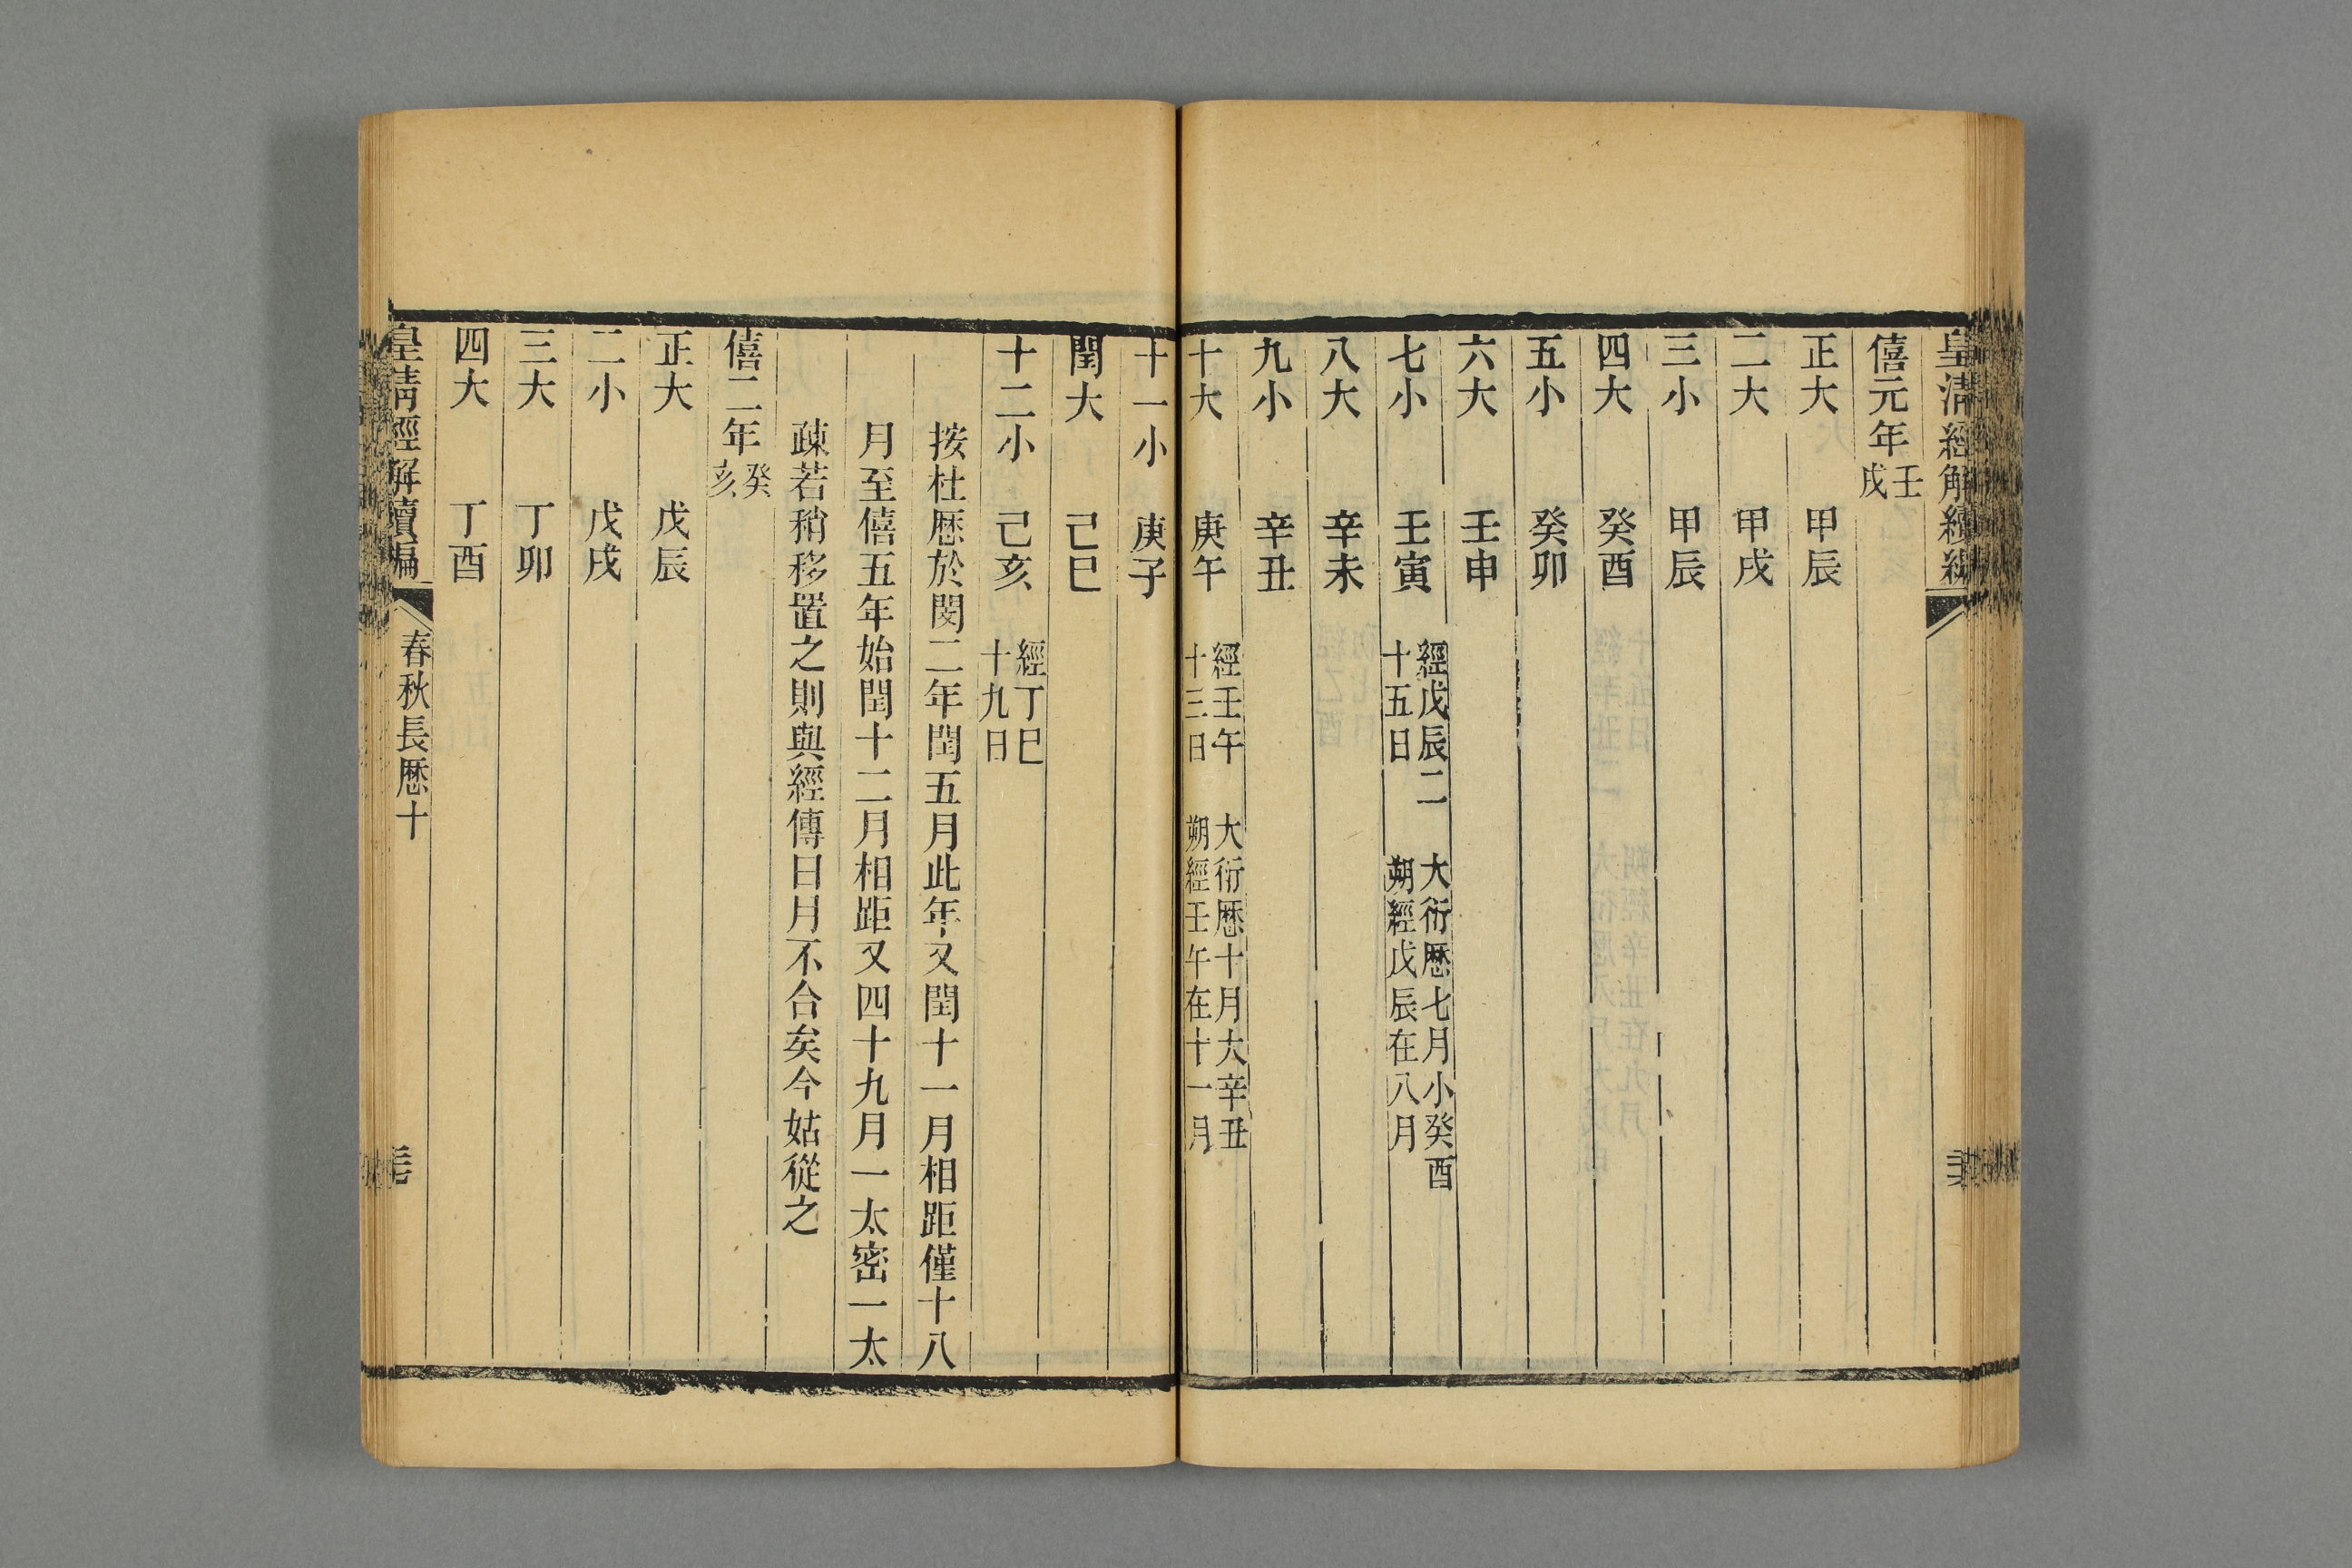 皇清經解續編
僖元年壬戌
正大 甲辰
二大 甲戌
三小 甲辰
四大 癸酉
五小 癸卯
六大 壬申
七小 壬寅 經戊辰二十五日 大衍厯七月小癸酉朔經戊辰在八月
八大 辛未
九小 辛丑
十大 庚午 經壬午十三日 大衍厯十月大辛丑朔經壬午在十一月
十一小 庚子
閏大 己巳
十二小 己亥 經丁巳十九日
按杜厯於閔二年閏五月此年又閏十一月相距僅十八
月至僖五年始閏十二月相距又四十九月一太密一太
疎若稍移置之則與經傳日月不合矣今姑從之
僖二年癸亥
正大 戊辰
二小 戊戌
三大 丁卯
四大 丁酉
皇清經解續編 春秋長厯十